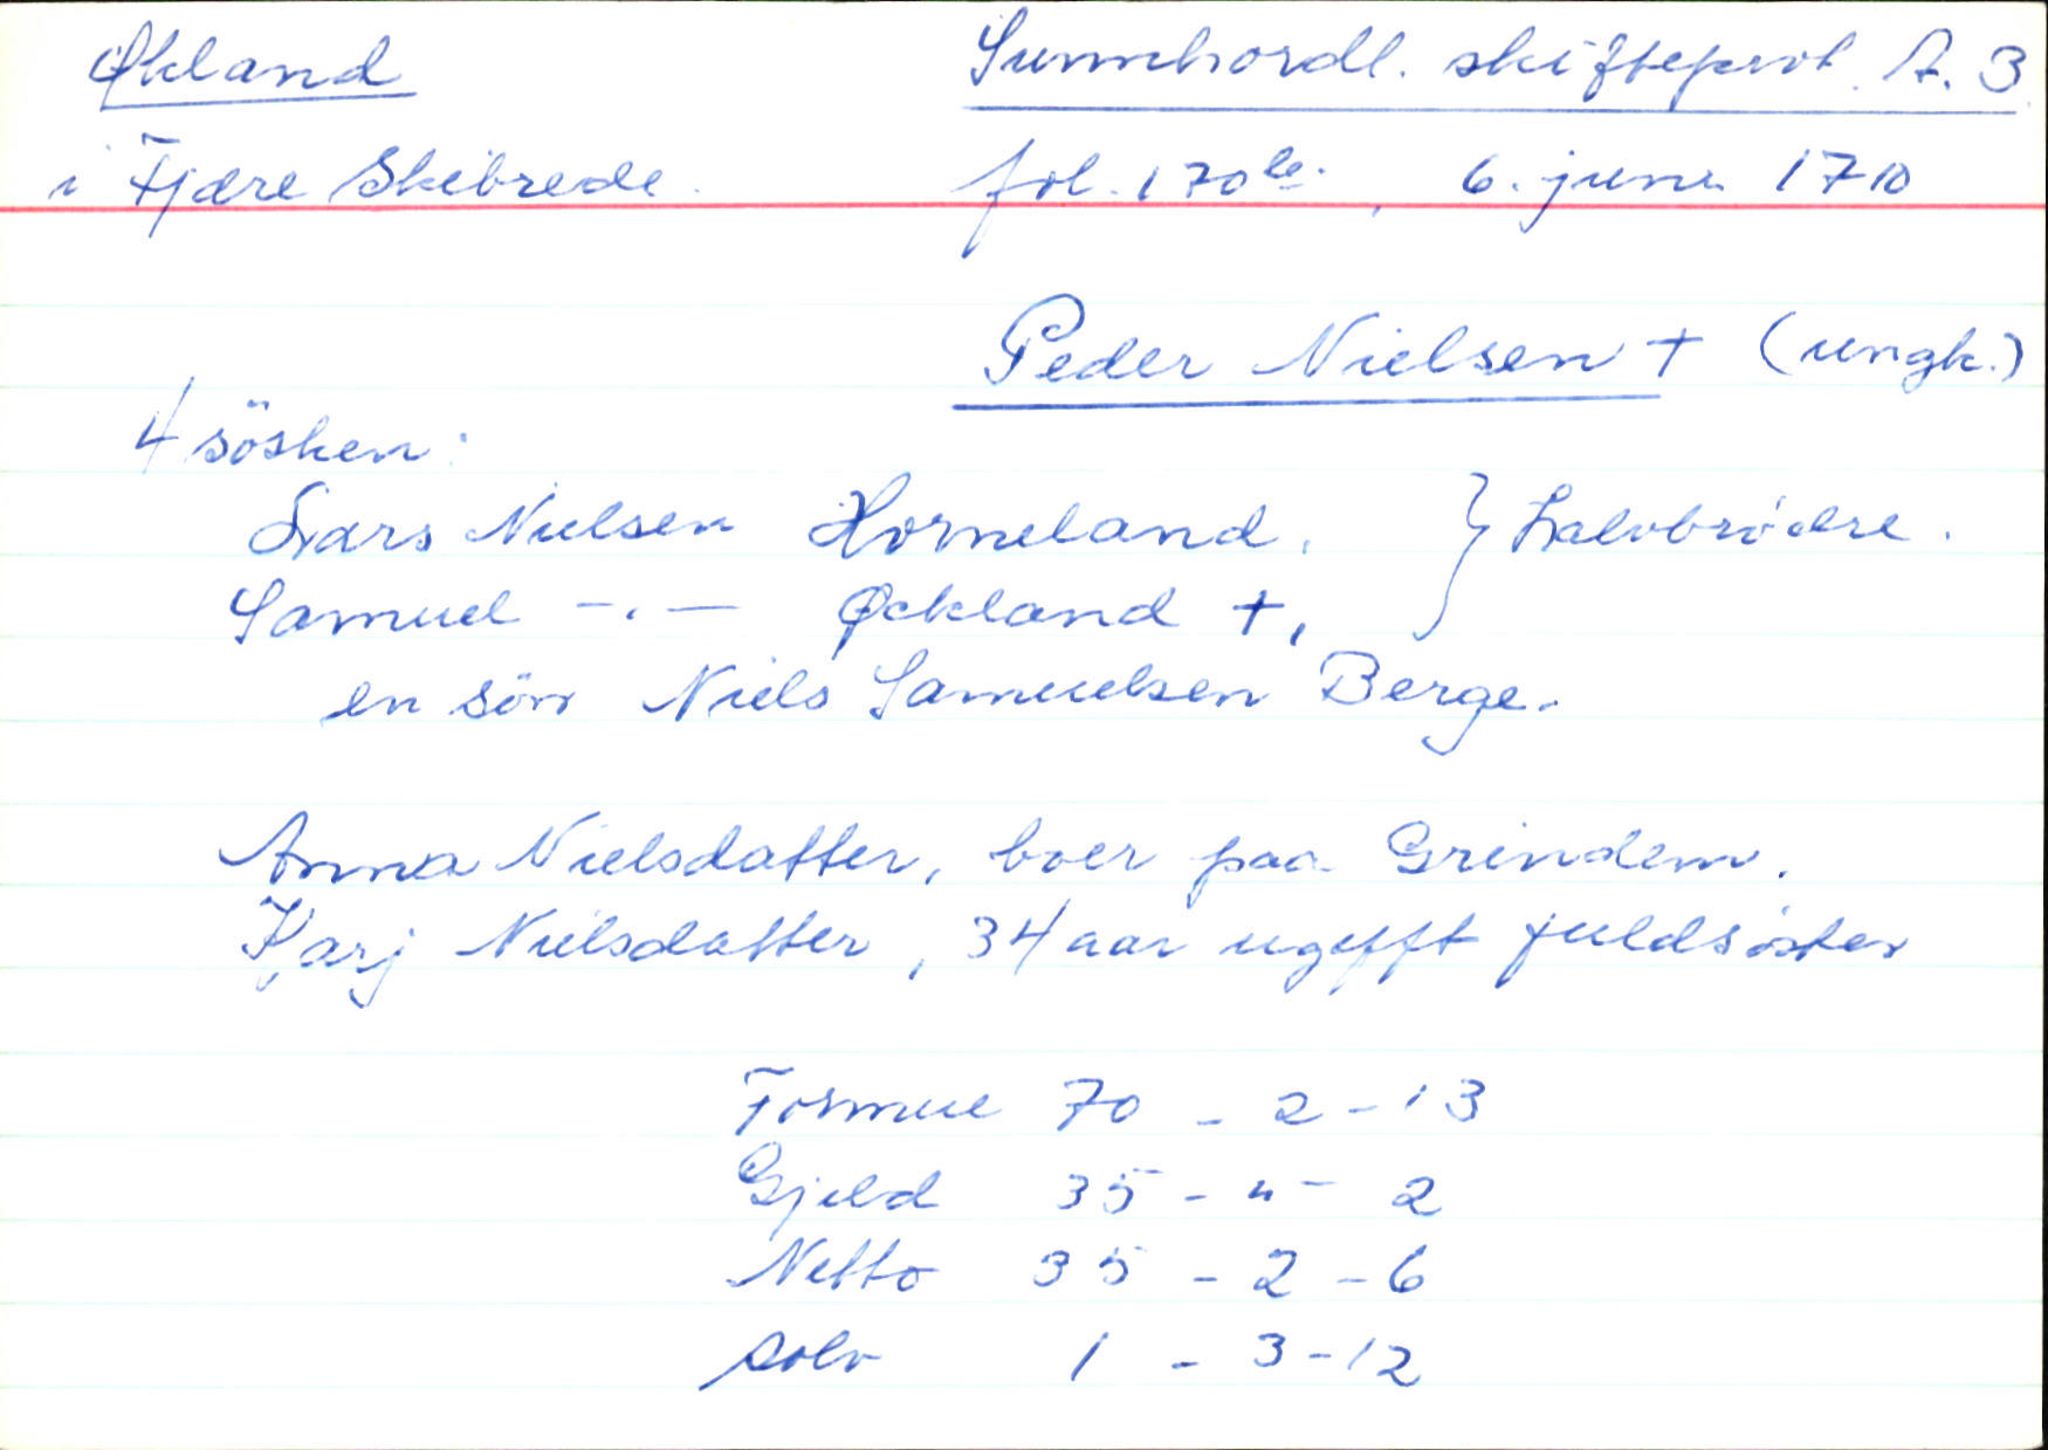 Økland
Sunnhordl. skifteprot. A. 3
i Fjære Skibrede.
fol. 170b., 6. juni 1710
Peder Nielsen + (ungk.)
4 sösken:
Lars Nielsen Horneland. } halvbrödre.
Samuel -.- Øckland +,
en sön Niels Samuelsen Berge.
Anna Nielsdatter, boer paa Grindem.
Karj Nielsdatter, 34 aar ugifft fuldsöster
Formue 70 - 2 - 13
Gjeld 35 - " - 2
Netto 35 - 2 - 6
sölv 1 - 3 - 12